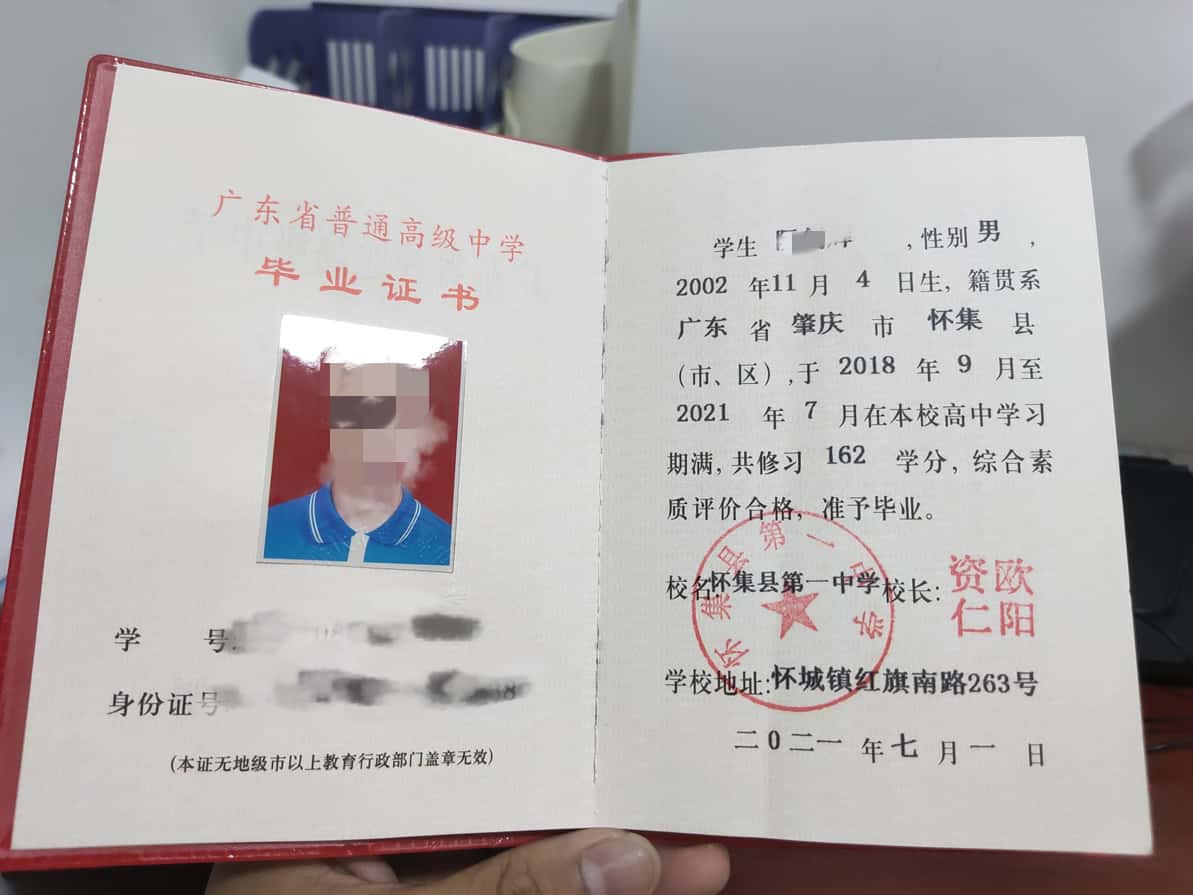 广东省普通高级中学
毕业证书
学 号:
身份证号
(本证无地级市以上教育行政部门盖章无效)
学生 ,性别 男 ,
2002 年 11 月 4 日生, 籍贯系
广东 省 肇庆 市 怀集 县
(市、区) ,于 2018 年 9 月至
2021 年 7 月在本校高中学习
期满, 共修习 162 学分, 综合素
质评价合格, 准予毕业。
校名怀集县第一中学校长:
欧阳资仁
怀集县第一中学
学校地址:怀城镇红旗南路263号
二0二一 年 七 月 一 日